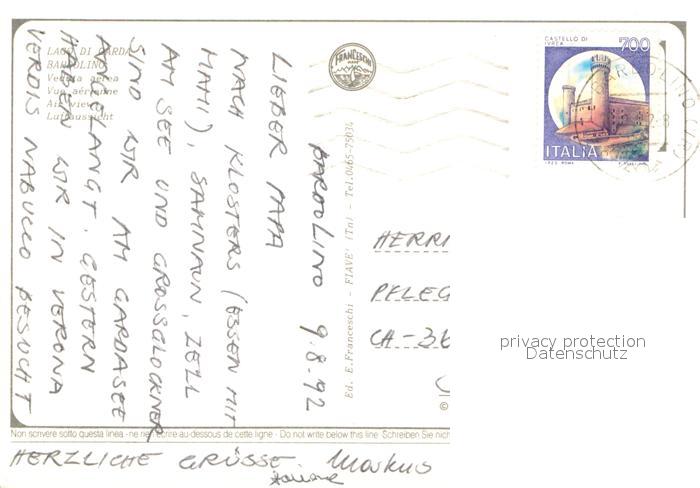 LAGO DI GARDA
BARDOLINO
Veduta aerea
Vue aérienne
Air view
Luftaussicht
FRANCESCHI
CASTELLO DI
IVREA
700
ITALIA
BARDOLINO
BARDOLINO 9.8.92
LIEBER PAPA
NACH KLOSTERS (ESSEN MIT
MAMI), SAMNAUN, ZELL
AM SEE UND GROSSGLOCKNER
SIND WIR AM GARDASEE
ANGELANGT. GESTERN
HABEN WIR IN VERONA
VERDIS NABUCCO BESUCHT
HERZLICHE GRÜSSE. Markus
Ed. E.Franceschi - FIAVE' (Tn) - Tel.0465-75034
HERRN
PFLEG
CA-36
privacy protection
Datenschutz
Non scrivere sotto questa linea - ne rien écrire au-dessous de cette ligne - Do not write below this line Schreiben Sie nich